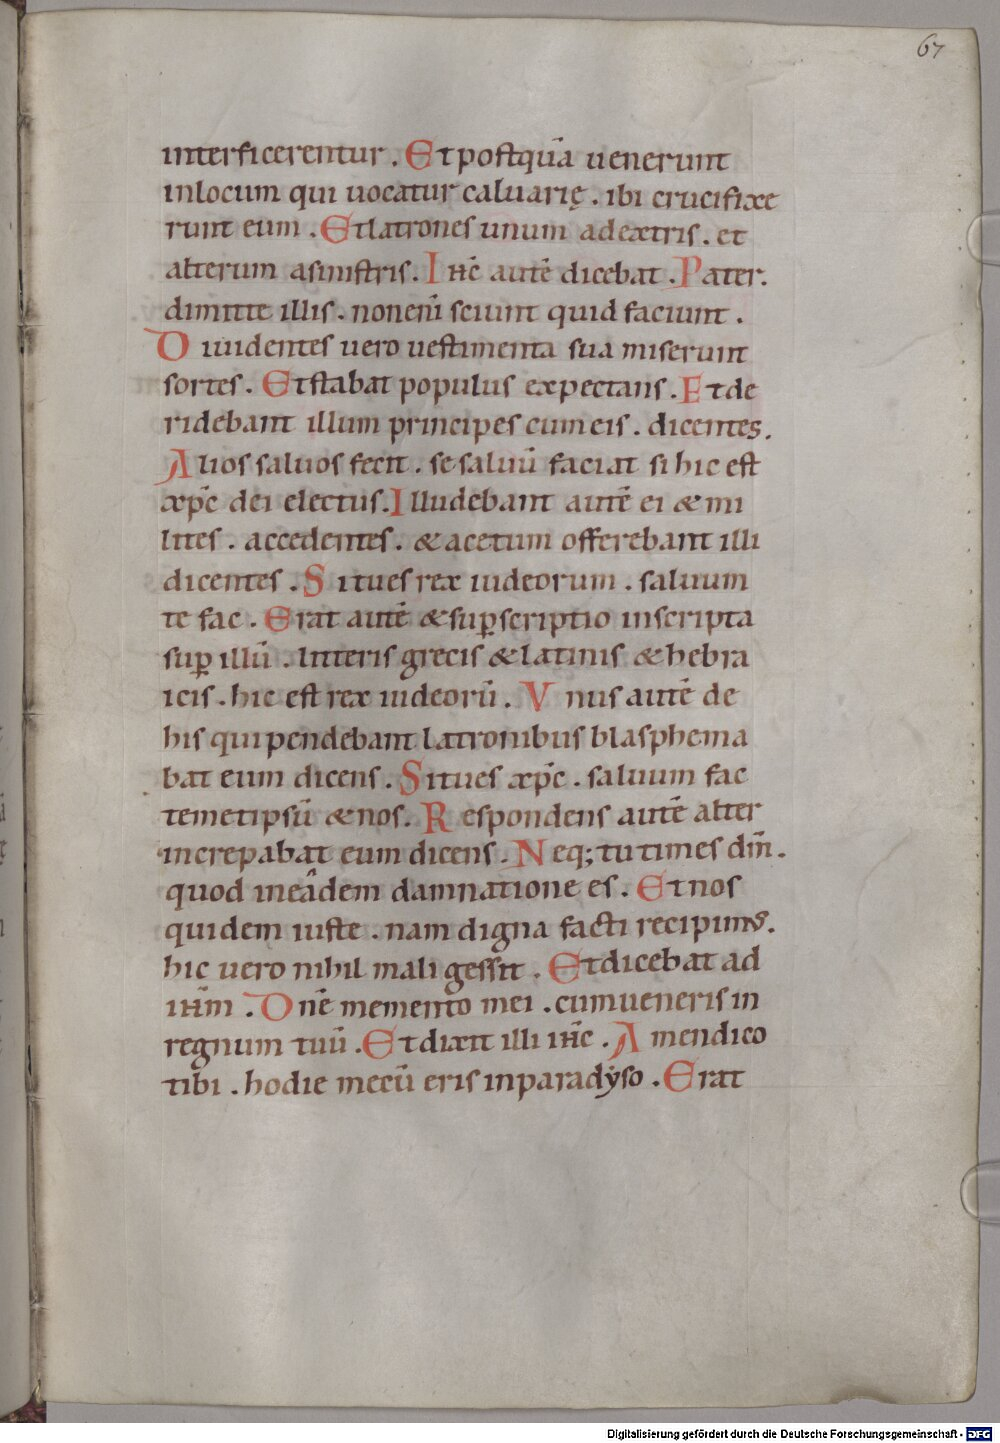 67
interficerentur . Et postquā uenerunt
in locum qui uocatur caluarię . ibi crucifixe
runt eum . Et latrones unum a dextris . et
alterum a sinistris . Ihc̄ autē dicebat . Pater .
dimitte illis . non enī sciunt quid faciunt .
Diuidentes uero uestimenta sua miserunt
sortes . Et stabat populus expectans . Et de
ridebant illum principes cum eis . dicentes .
Alios saluos fecit . se saluū faciat si hic est
xpc̄ dei electus . Illudebant autē ei & mi
lites . accedentes . & acetum offerebant illi
dicentes . Si tu es rex iudeorum . saluum
te fac . Erat autē & suꝑscriptio inscripta
suꝑ illū . litteris grecis & latinis & hebra
icis . hic est rex iudeorū . Vnus autē de
his qui pendebant latronibus blasphema
bat eum dicens . Si tu es xpc̄ . saluum fac
temetipsū & nos . Respondens autē alter
increpabat eum dicens . Neq; tu times dm̄ .
quod in eadem damnatione es . Et nos
quidem iuste . nam digna factis recipimꝰ .
hic uero nihil mali gessit . Et dicebat ad
ihm̄ . Dn̄e memento mei . cum ueneris in
regnum tuū . Et dixit illi ihc̄ . Amen dico
tibi . hodie mecū eris in paradẏso . Erat
Digitalisierung gefördert durch die Deutsche Forschungsgemeinschaft - DFG